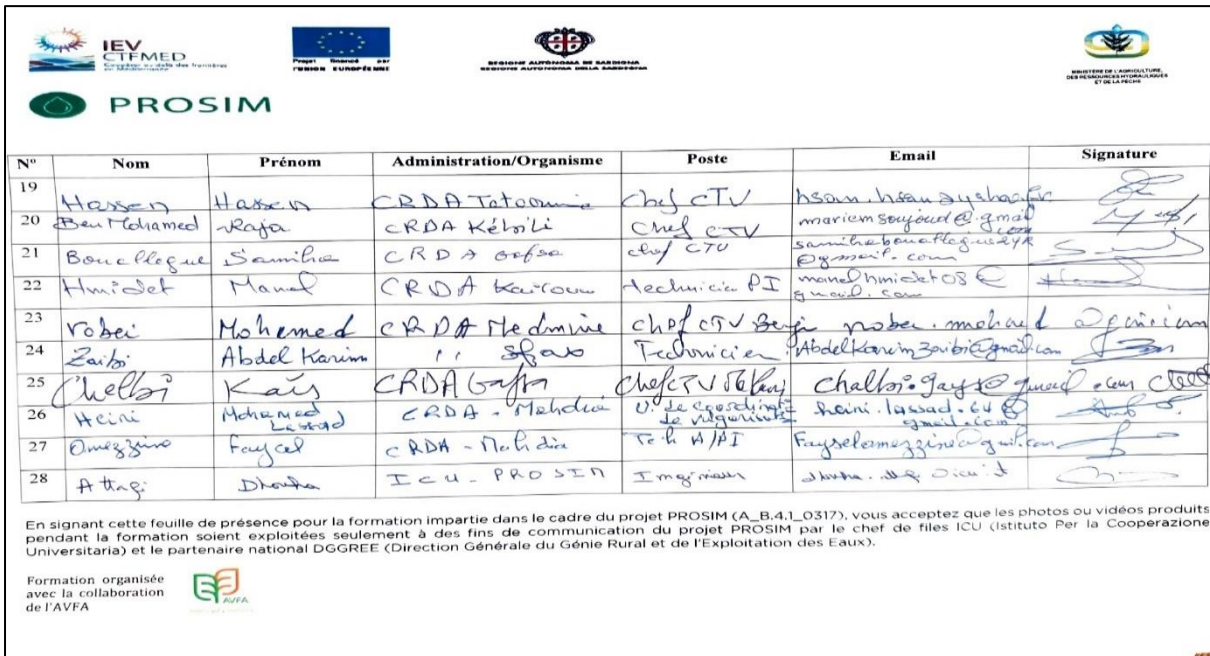 IEV
CTFMED
Coopérer au-delà des frontières
en Méditerranée
Projet financé par
l'UNION EUROPÉENNE
REGIONE AUTÒNOMA DE SARDIGNA
REGIONE AUTONOMA DELLA SARDEGNA
MINISTÈRE DE L'AGRICULTURE,
DES RESSOURCES HYDRAULIQUES
ET DE LA PÊCHE
PROSIM
N° Nom Prénom Administration/Organisme Poste Email Signature
19 Hassen Hassen CRDA Tataouine Chef CTV
20 Ben Mohamed Raja CRDA Kébili Chef CTV mariemsoujoud@gmail
.com
21 Bouallegue Samiha CRDA Gafsa chef CTV
@gmail.com
22 Hmidet Manel CRDA Technicien PI manelhmidet08@
gmail.com
23 Mohamed CRDA Medenine Chef CTV
24 Zaibi Abdel Karim ,, Sfax Technicien AbdelKarimZaibi@gmail.com
25 Chelbi Kaïs CRDA Gafsa Chef CTV
26 Heini Mohamed Lassad CRDA - Mahdia heini.lassad.64@
gmail.com
27 Omezzine Fayçal CRDA - Mahdia Tech A/PI
28 Attagi Dhouha ICU - PROSIM
En signant cette feuille de présence pour la formation impartie dans le cadre du projet PROSIM (A_B.4.1_0317), vous acceptez que les photos ou vidéos produits
pendant la formation soient exploitées seulement à des fins de communication du projet PROSIM par le chef de files ICU (Istituto Per la Cooperazione
Universitaria) et le partenaire national DGGREE (Direction Générale du Génie Rural et de l'Exploitation des Eaux).
Formation organisée
avec la collaboration
de l'AVFA
AVFA